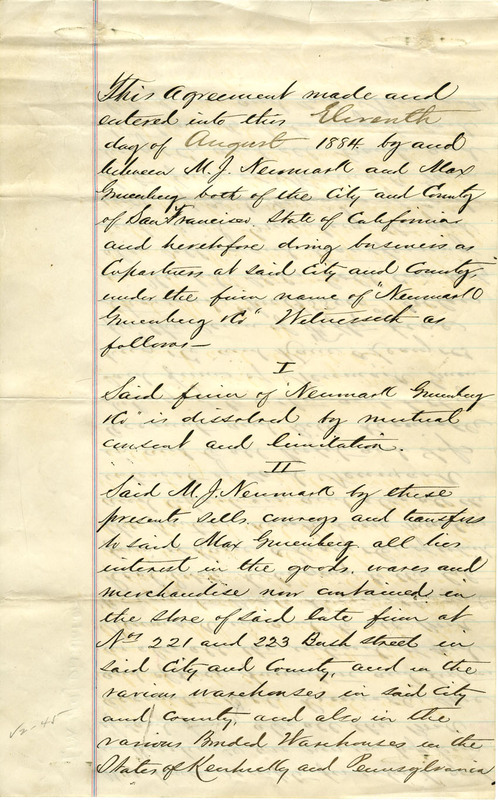 This Agreement made and
entered into this Eleventh
day of August 1884 by and
between M. J. Neumark and Max
Gruenberg both of the City and County
of San Francisco, State of California
and heretofore doing business as
Copartners at said City and County
under the firm name of "Neumark
Gruenberg & Co" Witnesseth as
follows—
I
Said firm of "Neumark Gruenberg
& Co" is dissolved by mutual
consent and limitation.
II
Said M. J. Neumark by these
presents sells, conveys and transfers
to said Max Gruenberg all his
interest in the goods, wares and
merchandise now contained in
the store of said late firm at
Nos 221 and 223 Bush street in
said City and County, and in the
various warehouses in said City
and County, and also in the
various Bonded Warehouses in the
States of Kentucky and Pennsylvania